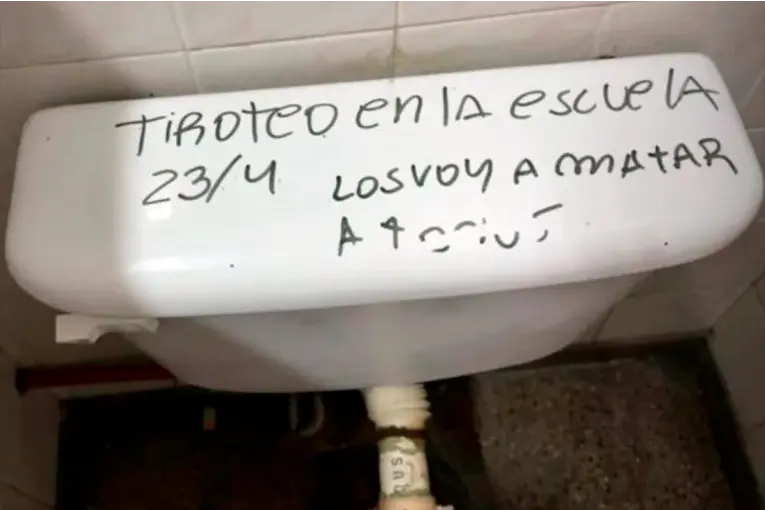 TIROTEO en lA escuelA
23/4 LOS VOY A MATAR
A
sng